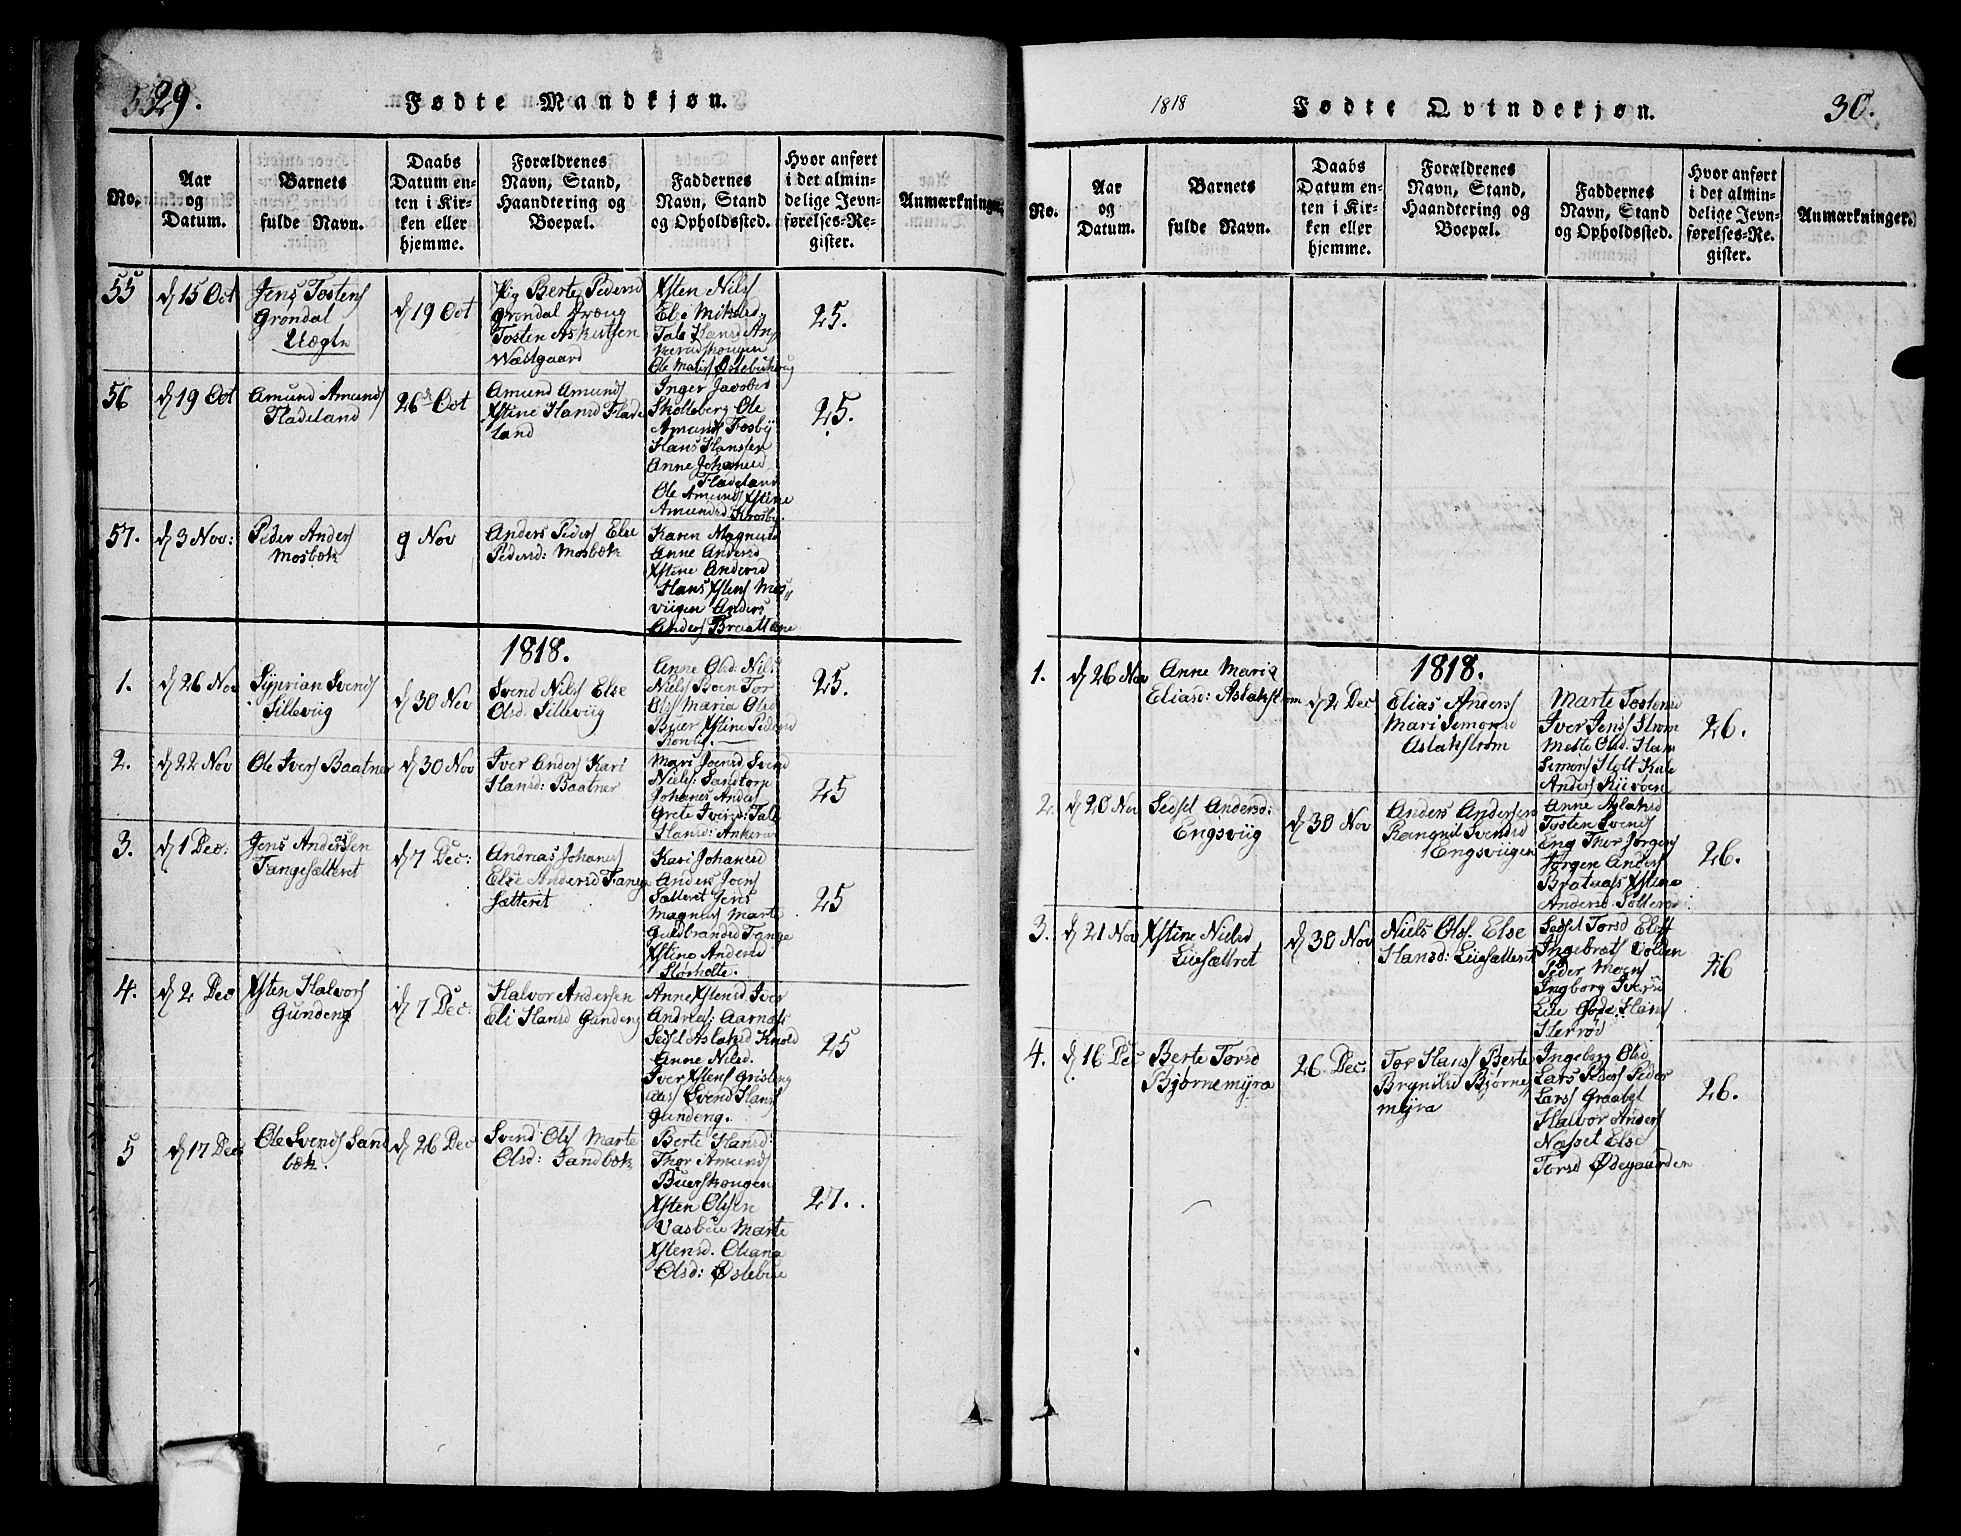 29.
Fødte Mandkjøn.
No.
Aar
og
Datum.
Barnets
fulde Navn.
Daabs
Datum en-
ten i Kir-
ken eller
hjemme.
Forældrenes
Navn, Stand,
Haandtering og
Boepæl.
Faddernes
Navn, Stand
og Opholdssted.
Hvor anført
i det almin-
delige Jevn-
førelses-Re-
gister.
Anmærkninger.
55
d 15 Oct
Jens Tostens
Grøndal
Uægte
d 19 Oct
Pig Berte Pedersd
Grøndal
Tosten
Wæstgaard
Xsten Nils
Eli Mikelsd
Tale Hansd
Ole
25.
56
d 19 Oct
Amund Amunds
Fladeland
26 Oct
Amund Amunds
Xstine Hansd Flade
land
Inger Jacobsd
Skolleberg Ole
Amunds Fosby
Hans Hansen
Anne Johanesd
Fladeland
Ole Amunds Xstine
Amundsd Krosby.
25.
57.
d 3 Nov:
Peder Anders
Mosbæk
9 Nov
Anders Peders Else
Pedersd: Mosbæk
Karen Magnusd
Anne Andersd
Xstine Andersd
Hans Xstens Mos
viigen Anders
Anders Braattene
1818.
1.
d 26 Nov
Syprian Svends
Silleviig
d 30 Nov
Svend Nils Else
Olsd. Silleviig
Anne Olsd: Nils
Niels Boen Tor
Ols Maria Olsd
Buer Xstine Pedersd
25.
2.
d 22 Nov
Ole Ivers Baatner
d 30 Nov
Iver Anders Kari
Hansd: Baatner
Mari Joensd Svend
Niels: Sandtorp
Johanes Anders
Grete Iversd: Tale
Hansd: Ankerud
25
3.
d 1 Dec:
Jens Andersen
Tangesætteret
d 7 Dec:
Andreas Johanes
Else Andersd Tange
sætteret
Kari Johanesd
Anders Joens
Sætteret Jens
Magnus Marte
Guldbrandsd Tange
Xstine Andersd
Størholte.
25
4.
d 2 Dec
Xsten Halvors
Gundeng
d 7 Dec:
Halvor Andersen
Eli Hansd Gundeng
Anne Xstensd. Iver
Andreas: Aarnæs
Sedsel Aslaksd Knold
Anne Nilsd.
Iver Xstens Grisleng
aas Svend Hans
Gundeng.
25
5
d 17 Dec
Ole Svends Sand
bæk.
d 26 Dec
Svend Ols Marte
Olsd: Sandbæk
Berte Hansd:
Thor Amunds
Buerskougen
Xsten Olsen
Vasbue Marte
Xstensd. Oliana
Olsd: Østebue
27.
1818
Fødte Qvindekjøn.
30.
No.
Aar
og
Datum.
Barnets
fulde Navn.
Daabs
Datum en-
ten i Kir-
ken eller
hjemme.
Forældrenes
Navn, Stand,
Haandtering og
Boepæl.
Faddernes
Navn, Stand
og Opholdssted.
Hvor anført
i det almin-
delige Jevn-
førelses-Re-
gister.
Anmærkninger.
1818.
1.
d 26 Nov
Anne Maria
Eliasd: Aslakstrøm
d 2 Dec
Elias Anders
Mari Semonsd
Aslakstrøm
Marte Tostensd
Iver Jens Strøm
Mette Olsd. Hans
Semons Holt Kale
Anders Riiveen
26.
2.
d 20 Nov
Sedsel Andersd:
Engsviig
d 30 Nov
Anders Andersen
Ragnild Svendsd
Engsviigen
Anne Aslaksd
Tosten Svends
Eng Thor Jørgens
Jørgen Anders
Brataas Xstine
Andersd
26.
3.
d 21 Nov
Xstine Nielsd
Liesættret
d 30 Nov
Niels Ols. Else
Hansd: Liesætteret
Sedsel Torsd Elist
Ingebret Volden
Peder Mogns
Ingborg Iversd
Lie Gode Hans
Herrød
26
4.
d 16 Dec
Berte Torsd
Bjørnemyra
26 Dec:
Tor Hans Berte
Brynilsd Bjørne
myra
Ingeborg Olsd
Lars Peders Peder
Lars Graabøl
Halvor Anders
Næsset Else
Torsd Ødegaarden
26.